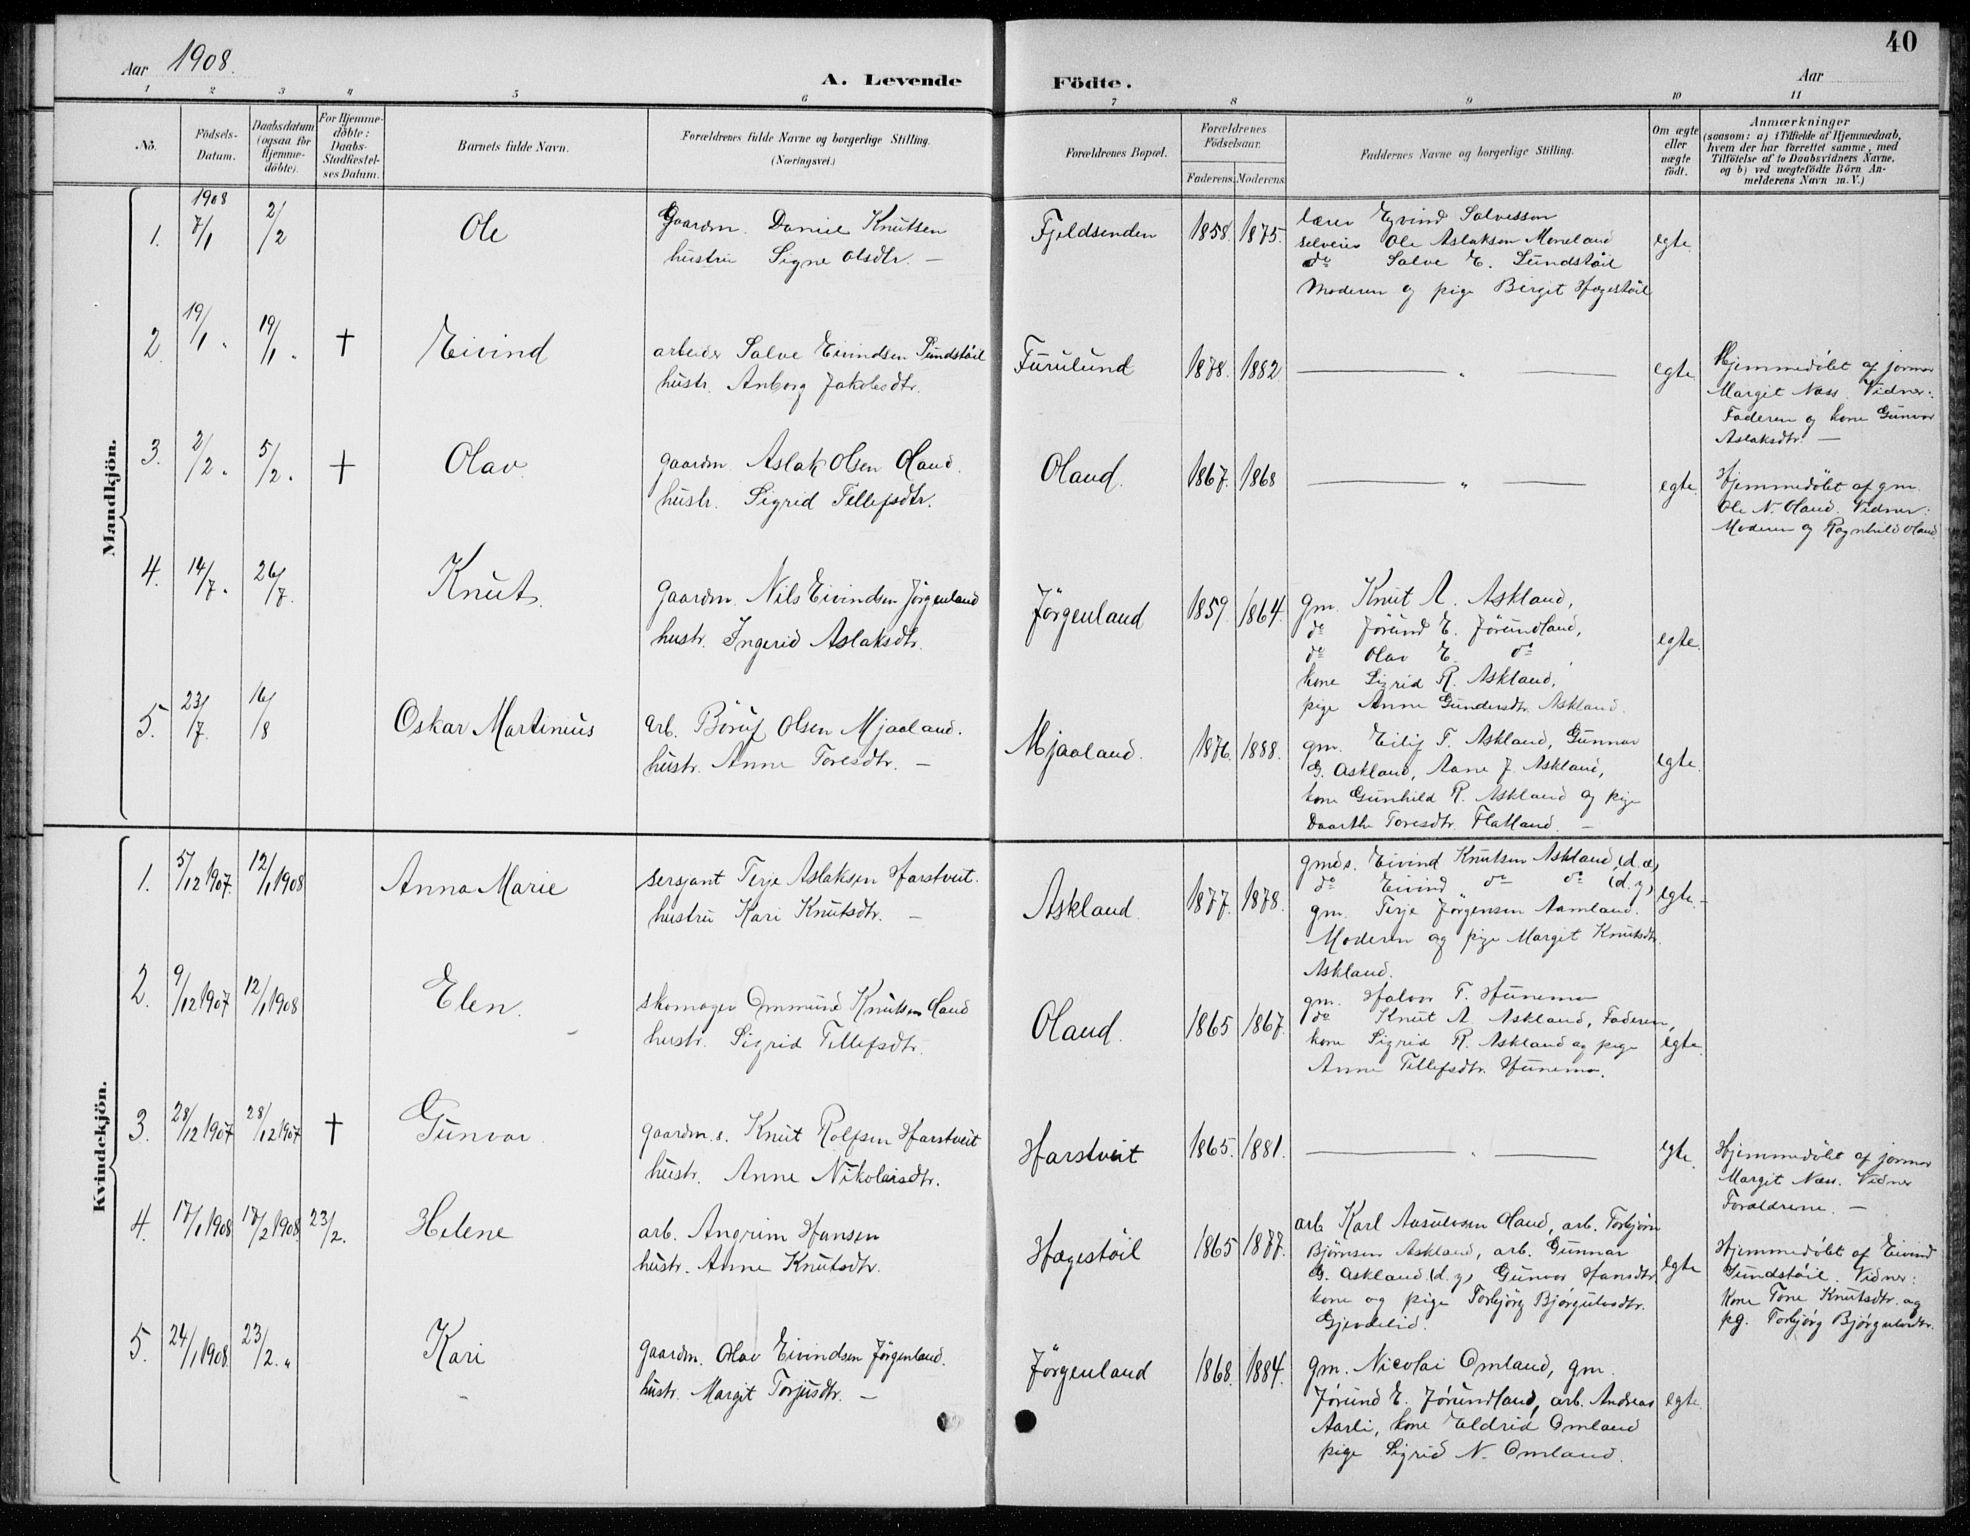 40
Aar 1908.
A. Levende Födte.
Aar
1 2 3 4 5 6 7 8 9 10 11
No.
Födsels-Datum.
Daabsdatum (ogsaa for Hjemme-döbte).
For Hjemme-döbte: Daabs-Stadfæstel-ses Datum.
Barnets fulde Navn.
Forældrenes fulde Navne og borgerlige Stilling. (Næringsvei.)
Forældrenes Bopæl.
Forældrenes Födselsaar.
Faderens. Moderens.
Faddernes Navne og borgerlige Stilling.
Om ægte eller uægte födt.
Anmærkninger
(saasom: a) i Tilfælde af Hjemmedaab,
hvem der har forrettet samme, med
Tilföielse af to Daabsvidners Navne,
og b) ved uægtefödte Börn An-
melderens Navn m. V.)
Mandkjön.
1. 1908 7/1 2/2 Ole
Gaardm. Daniel Knutsen
hustru Signe Olsdtr. —
Fjeldsenden 1858. 1875.
lærer Eyvind Salvesson
selveier Ole Aslaksen Moneland
do Salve E. Sundstøil
Moderen og pige Birgit Hægestøil
egte.
2. 19/1 „ 19/1 „ † Eivind
arbeider Salve Eivindsen Sundstøil
hustr. Anborg Jakobsdtr.
Furulund 1878. 1882 — „ — egte
Hjemmedøbt af jormor
Margit Næss. Vidner:
Faderen og kone Gunvor
Aslaksdtr. —
3. 2/2 „ 5/2 „ † Olav
gaardm. Aslak Olsen Oland.
hustr. Sigrid Tellefsdtr.
Oland. 1867. 1868 — „ — egte.
Hjemmedøbt af gm.
Ole N. Oland. Vidner:
Moderen og Ragnhild Oland
4. 14/7 „ 26/7. Knut.
gaardm. Nils Eivindsen Jørgenland
hustr. Ingerid Aslaksdtr.
Jørgenland 1859. 1864.
gm. Knut A. Askland,
do Jørund E. Jørundland,
do Olav E. do,
kone Sigrid R. Askland,
pige Anne Gundersdtr. Askland.
egte.
5. 23/7. 16/8 Oskar Martinius
arb. Børuf Olsen Mjaaland.
hustr. Anne Toresdtr. —
Mjaaland. 1876. 1888.
gm. Eilif T. Askland, Gunnar
G. Askland, Aane J. Askland,
kone Gunhild R. Askland og pige
Daarthe Toresdtr. Flatland. —
egte.
Kvindekjön.
1. 5/12 1907. 12/1 1908 Anna Marie
sersjant Terje Aslaksen Harstveit.
hustru Kari Knutsdtr. —
Askland. 1877. 1878.
gmds. Eivind Knutsen Askland, (d.æ)
do Eivind „ do do (d.y)
gm. Terje Jørgensen Aamland.
Moderen og pige Margit Knutsdtr.
Askland.
egte. –
2. 9/12 1907 12/1 1908 Elen.
skomager Ommund Knutsen Oland
hustr. Sigrid Tellefsdtr.
Oland. 1865 1867.
gm. Halvor T. Hunemo
do Knut A. Askland, Faderen,
kone Sigrid R. Askland og pige
Anne Tellefsdtr. Hunemo.
egte.
3. 28/12 1907 28/12 1907 † Gunvor
gaardm.s. Knut Rolfsen Harstveit
hustr. Anne Nikolaisdtr.
Harstveit 1865. 1881. — „ — egte.
Hjemmedøbt af jormor
Margit Næss. Vidner
Forældrene. —
4. 17/1 1908 17/2 1908. 23/2. Helene
arb. Angrim Hansen
hustr. Anne Knutsdtr.
Hægestøil 1865 1877.
arb. Karl Aasulvsen Oland, arb. Torbjørn
Bjørnsen Askland, arb. Gunnar
G. Askland (d.y) Gunvor Hansdtr.
kone og pige Torbjørg Bjørgulvsdtr.
Gjevdelid.
egte
Hjemmedøbt af Eivind
Sundstøil. Vidner:
kone Tone Knutsdtr. og
pg. Torbjørg Bjørgulvsdtr.
5. 24/1 1908. 23/2. „ Kari
gaardm. Olav Eivindsen Jørgenland.
hustr. Margit Torjusdtr. —
Jørgenland 1868. 1884.
gm. Nicolai Omland, gm.
Jørund E. Jørundland, arb. Andreas
Aarli, kone Eldrid Omland
pige Sigrid N. Omland.
egte.